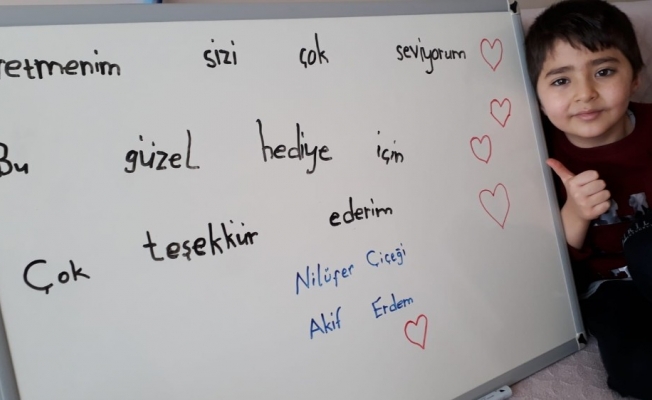 retmenim sizi çok seviyorum
Bu güzel hediye için
Çok teşekkür ederim
Nilüfer Çiçeği
Akif Erdem